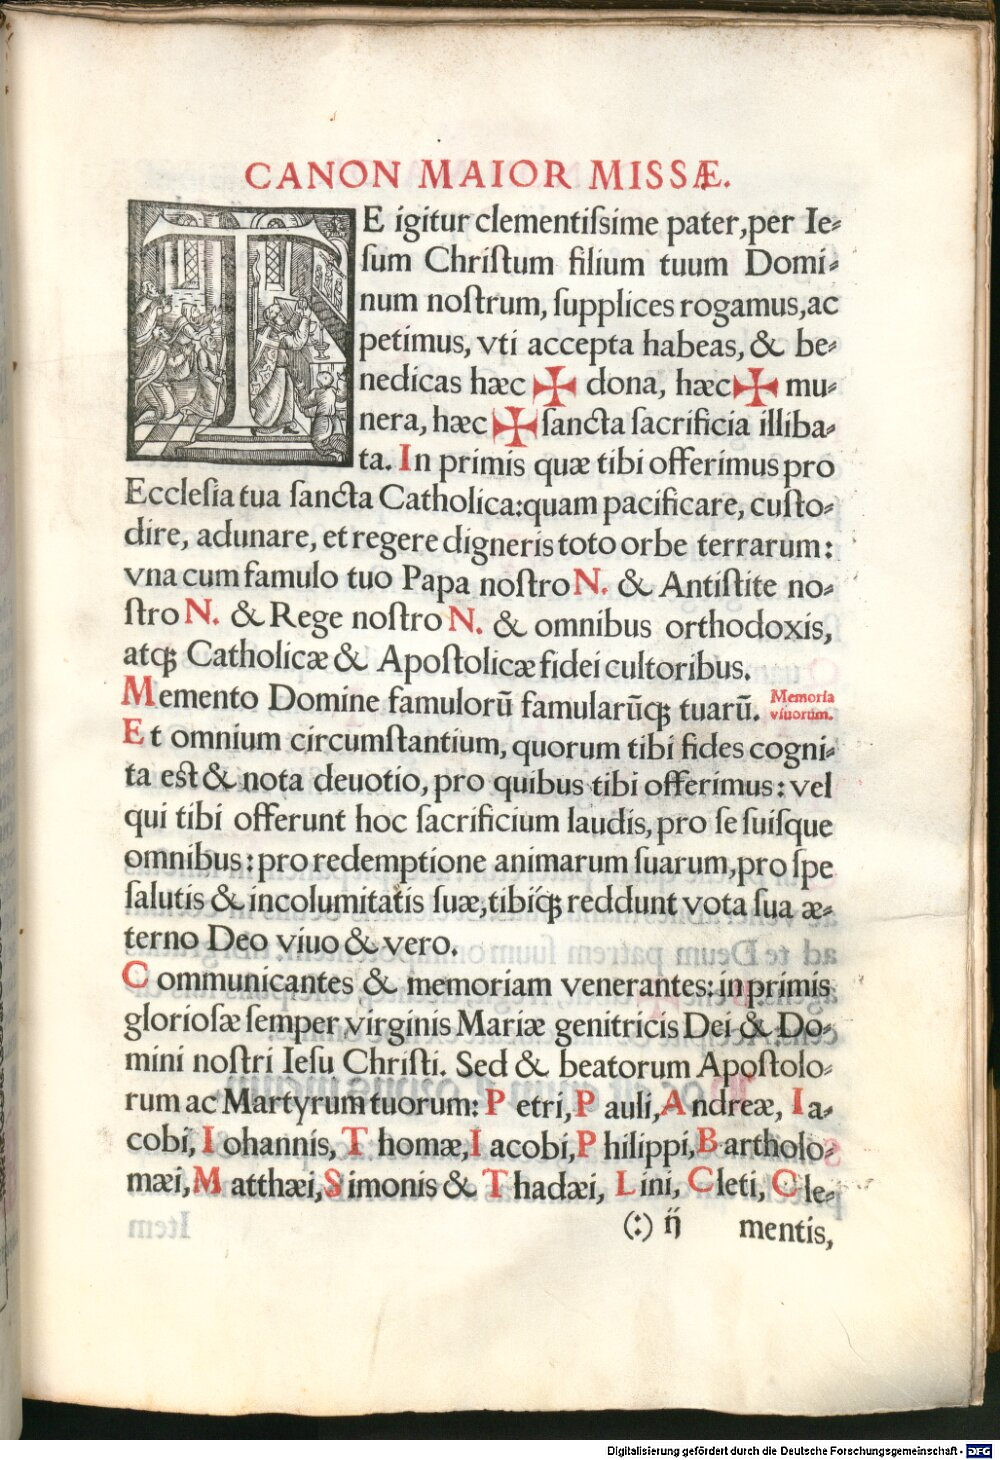 CANON MAIOR MISSÆ.
TE igitur clementiſsime pater,per Ie-
ſum Chriſtum filium tuum Domi-
num noſtrum, ſupplices rogamus,ac
petimus, vti accepta habeas, & be-
nedicas hæc ✠ dona, hæc ✠ mu-
nera, hæc ✠ ſancta ſacrificia illiba-
ta. In primis quæ tibi offerimus pro
Eccleſia tua ſancta Catholica:quam pacificare, cuſto-
dire, adunare, et regere digneris toto orbe terrarum:
vna cum famulo tuo Papa noſtro N. & Antiſtite no-
ſtro N. & Rege noſtro N. & omnibus orthodoxis,
atqꝫ Catholicæ & Apoſtolicæ fidei cultoribus.
Memento Domine famulorũ famularũqꝫ tuarũ. Memoria
viuorum.
Et omnium circumſtantium, quorum tibi fides cogni-
ta eſt & nota deuotio, pro quibus tibi offerimus: vel
qui tibi offerunt hoc ſacrificium laudis, pro ſe ſuiſque
omnibus: pro redemptione animarum ſuarum,pro ſpe
ſalutis & incolumitatis ſuæ,tibiq́ꝫ reddunt vota ſua æ-
terno Deo viuo & vero.
Communicantes & memoriam venerantes: in primis
glorioſæ ſemper virginis Mariæ genitricis Dei & Do-
mini noſtri Ieſu Chriſti. Sed & beatorum Apoſtolo-
rum ac Martyrum tuorum: Petri, Pauli, Andreæ, Ia-
cobi, Iohannis, Thomæ, Iacobi, Philippi, Bartholo-
mæi, Matthæi, Simonis & Thadæi, Lini, Cleti, Cle-
(:) ij mentis,
Digitalisierung gefördert durch die Deutsche Forschungsgemeinschaft - DFG